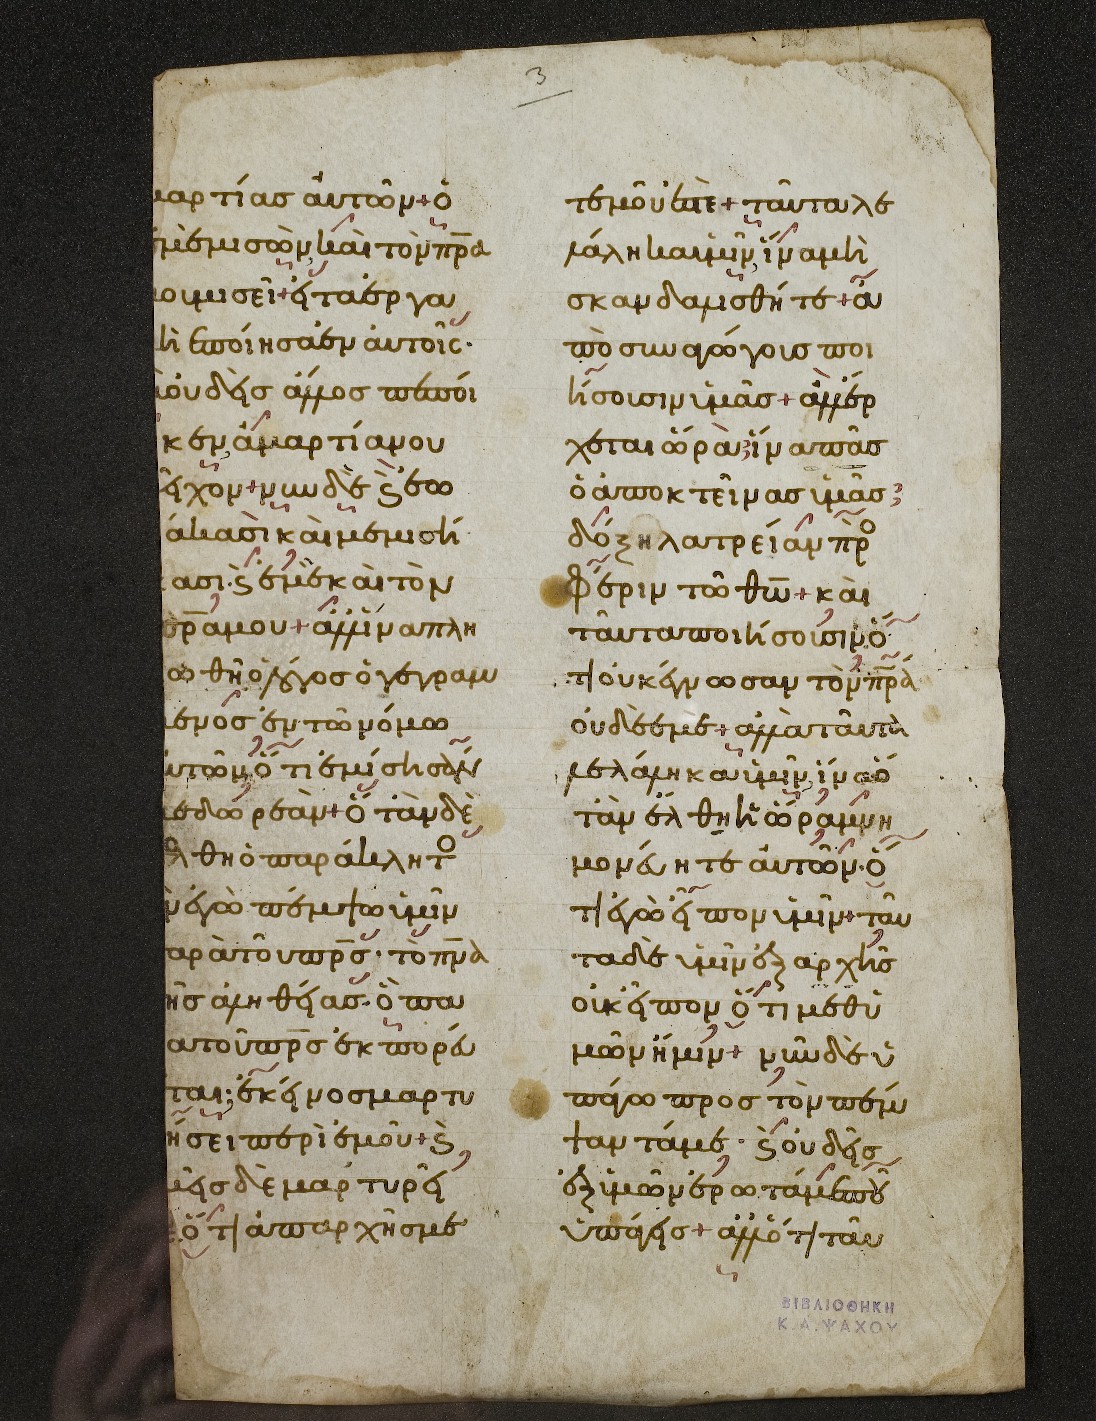 3
μαρτίασ ἀυτῶν + ὁ
ἐμὲ μισῶν, καὶ τὸν πρ̅α
μου μισεῖ + εἰ τὰ έργα
μὴ ἐποίησα ἐν ἀυτοῖς·
οὐδεὶσ ἄλλοσ πεποί
κεν, ἁμαρτίαν ου
εἶχον + νῦν δὲ ϗ ἑω
άκασὶ κὰι μεμισή
κασι· ϗ ἐμὲ κὰι τὸν
πρ̅α μου + ἀλλ ἵνα πλη
ωθῆ ὁ λόγοσ ὁ γεγραμ
μένοσ ἐν τῶ νόμω
αυτῶν, ὅτι ἐμίσησάν
με δωρεὰν + ὅταν δὲ
έλθη ὁ παράκλητο
ὃν ἐγὼ πέμψω ὑμῖν
παρὰ τοῦ πρ̅σ· τὸ πν̅α
τῆσ ἀληθείασ· ὃ πα
ρα τοῦ πρ̅σ ἐκπορεύ
ται· ἐκεῖνοσ μαρτυ
ρήσει περὶ ἐμοῦ + ϗ
ὑμεῖσ δὲ μαρτυρεῖ
ὅτι ἀπαρχῆσ με
τεμοῦ ἐστὲ + ταῦτα λε
λάληκα ὑμῖν, ἵνα μὴ
σκανδαλισθῆτε + ἀ
ποσυναγώγουσ ποι
ήσουσιν ὑμᾶσ + ἀλλέρ
χεται ὥρὰ ἵνα πᾶσ
ὁ ἀποκτεῖνασ ὑμᾶσ
δόξη λατρείαν πρ̀ο
φέριν τῶ θω̅ + κὰι
ταῦτα ποιήσουσιν ὅ
τι οὐκ έγνωσαν τὸν πρ̅α
ὀυδὲ ἐμέ + ἀλλὰ ταῦτα
λελάληκα ὑμῖν, ἵνα ὅ
τὰν έλθη ἡ ὥρα μνη
μονέυητε ἀυτῶν· ὅ
τι ἐγὼ εἶπον ὑμῖν + ταῦ
τα δὲ ὑμῖν ἐξ αρχῆσ
οὐκ εἶπον ὅτι μεθυ
μῶν ἤμὶν + νῦν δὲ ὑ
πάγω προσ τὸν πέμ
ψαντάμε· ϗ οὐδεὶσ
ἐξ ὑμῶν ἐρωτάμε ποῦ
ὑπάγεισ + ἀλλ ότι ταῦ
ΒΙΒΛΙΟΘΗΚΗ
Κ.Α.ΨΑΧΟΥ